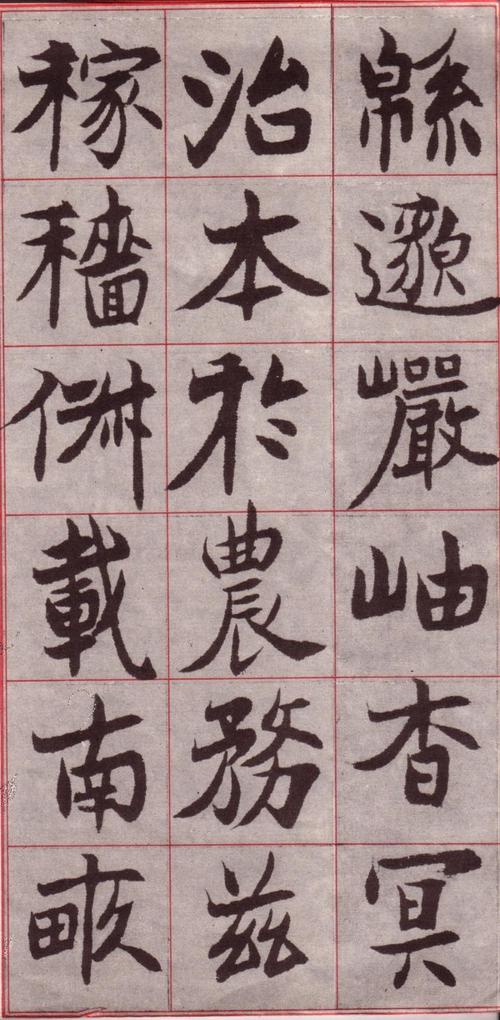 緜邈巖岫杳冥
治本於農務茲
稼穡俶載南畝